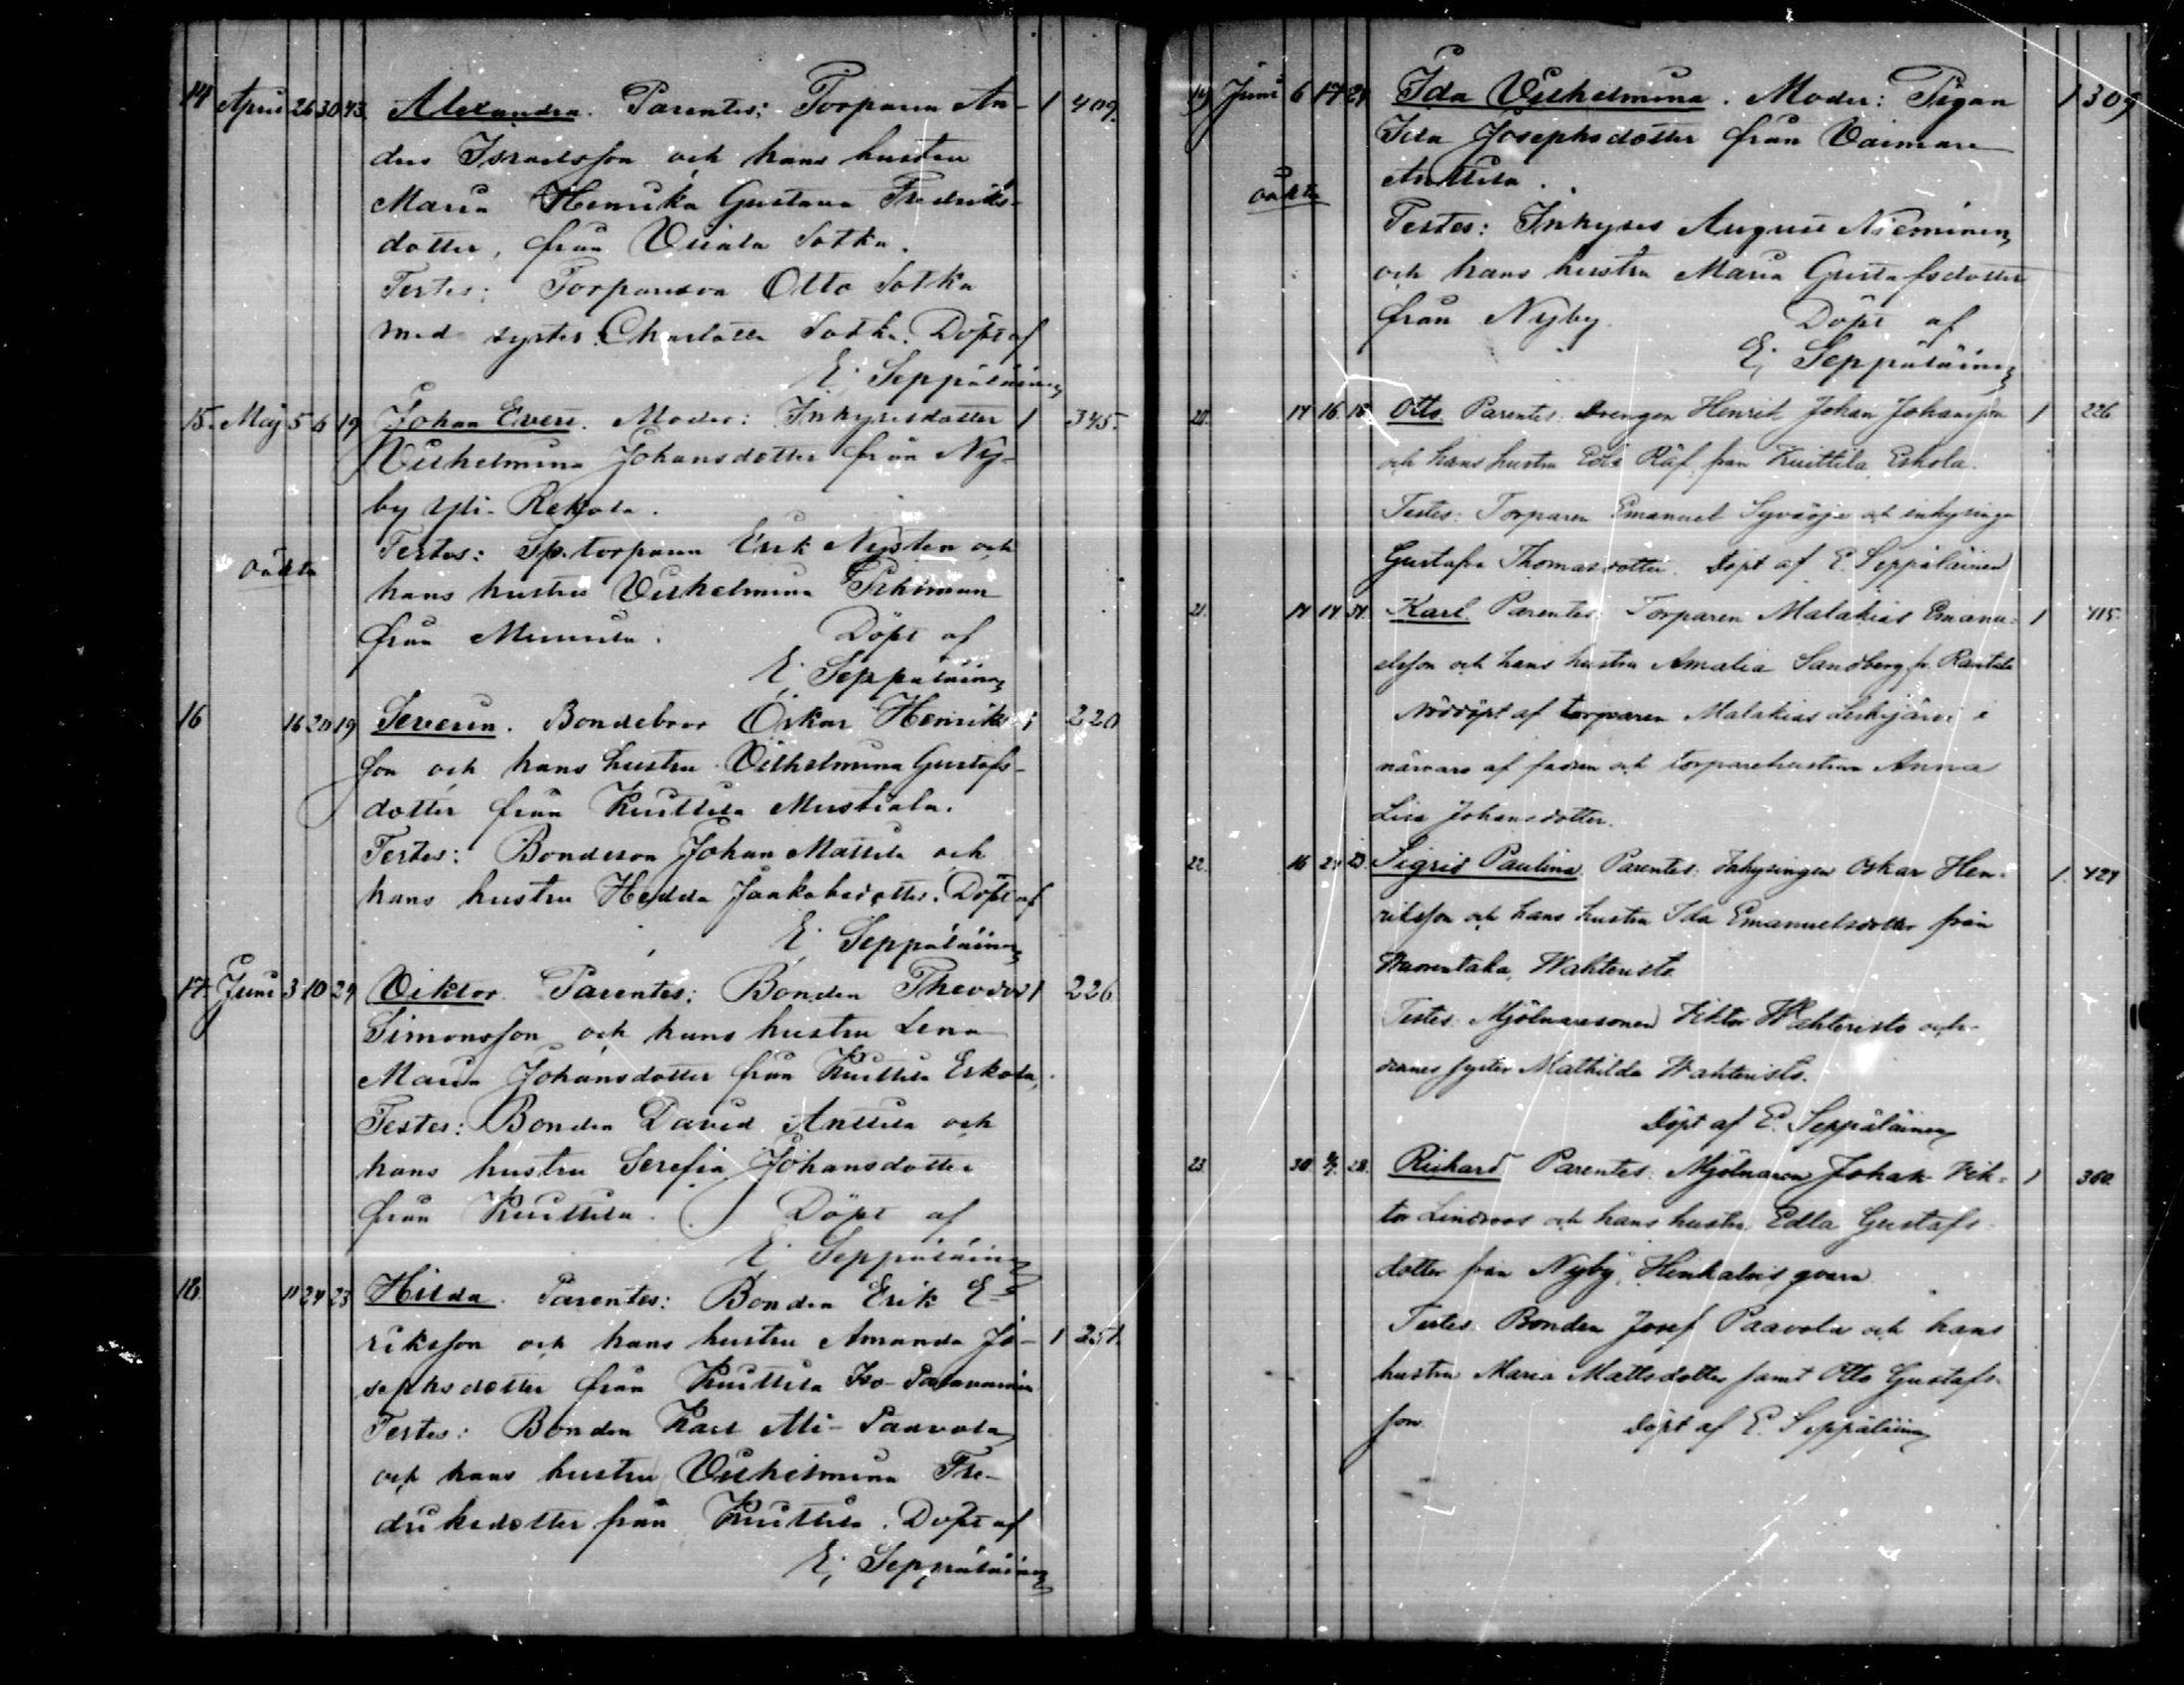 14 April 26 30 43. Alexandra. Parentes: Torparen An- 1 409.
ders Israelsson och hans hustru
Maria Henrika Gustava Fredriks-
dotter, från Uiala Sotka.
Testes: Torpareson Otto Sotka
med syster Charlotta Sotka. Döpt af
E. Seppäläinen
15. Maj 5 6 19 Johan Evert. Moder: Inhysesdotter 1 345.
Vilhelmina Johansdotter från Ny-
by Yli-Rekola.
Testes: Sp. torparen Erik Nysten och
oäkta
hans hustru Vilhelmina
från Döpt af
E. Seppäläinen
16 16 20 19 Severin. Bondebror Oskar Henriks- 1 220
son och hans hustru Vilhelmina Gustafs-
dotter från Kuittila Mustiala.
Testes: Bondeson Johan Mattila och
hans hustru Hedda Jaakobsdotter. Döpt af
E. Seppäläinen
17. Juni 3 10 29 Viktor. Parentes: Bonden Theodor 1 226
Simonsson och hans hustru Lena
Maria Johansdotter från Kuittila Eskola.
Testes: Bonden David Anttila och
hans hustru Serafia Johansdotter
från Kuittila. Döpt af
E. Seppäläinen
18. 11 24 23 Hilda. Parentes: Bonden Erik E-
riksson och hans hustru Amanda Jo- 1 251.
sephsdotter från Kuittila Iso-
Testes: Bonden Karl Ali-Paavola
och hans hustru Vilhelmina Fre-
driksdotter från Kuittila. Döpt af
E. Seppäläinen
19 Juni 6 17 21 Ida Vilhelmina. Moder: Pigan 1 309
Ida Josephsdotter från Vaimare
Anttila.
oäkta
Testes: Inhyses August Nieminen
och hans hustru Maria Gustafsdotter
från Nyby. Döpt af
E. Seppäläinen
20. 14 16 15 Otto. Parentes: Drengen Henrik Johan Johansson 1 226
och hans hustru Eva Räf från Kuittila Eskola.
Testes: Torparen Emanuel Syväoja och inhysinge
Gustafva Thomasdotter. Döpt af E. Seppäläinen
21. 14 14 34. Karl. Parentes: Torparen Malakias Emanu- 1 415.
elsson och hans hustru Amalia Sandberg fr. Rantala
Nöddöpt af torparen Malakias Leskijärvi i
närvaro af fadren och torparehustrun Anna
Lisa Johansdotter.
22. 16 24 23. Sigrid Paulina. Parentes: Inhysingen Oskar Hen- 1. 424
riksson och hans hustru Ida Emanuelsdotter från
Wuorentaka, Wahteristo.
Testes: Mjölnaresonen Viktor Wahteristo och
dennes syster Mathilda Wahteristo.
Döpt af E. Seppäläinen
23. 30. 4/7. 28. Richard. Parentes: Mjölnaren Johan Vik- 1 360.
tor Lindroos och hans hustru Edla Gustafs-
dotter från Nyby, Henkalois qvarn
Testes: Bonden Josef Paavola och hans
hustru Maria Mattsdotter samt Otto Gustafs-
son. Döpt af E. Seppäläinen